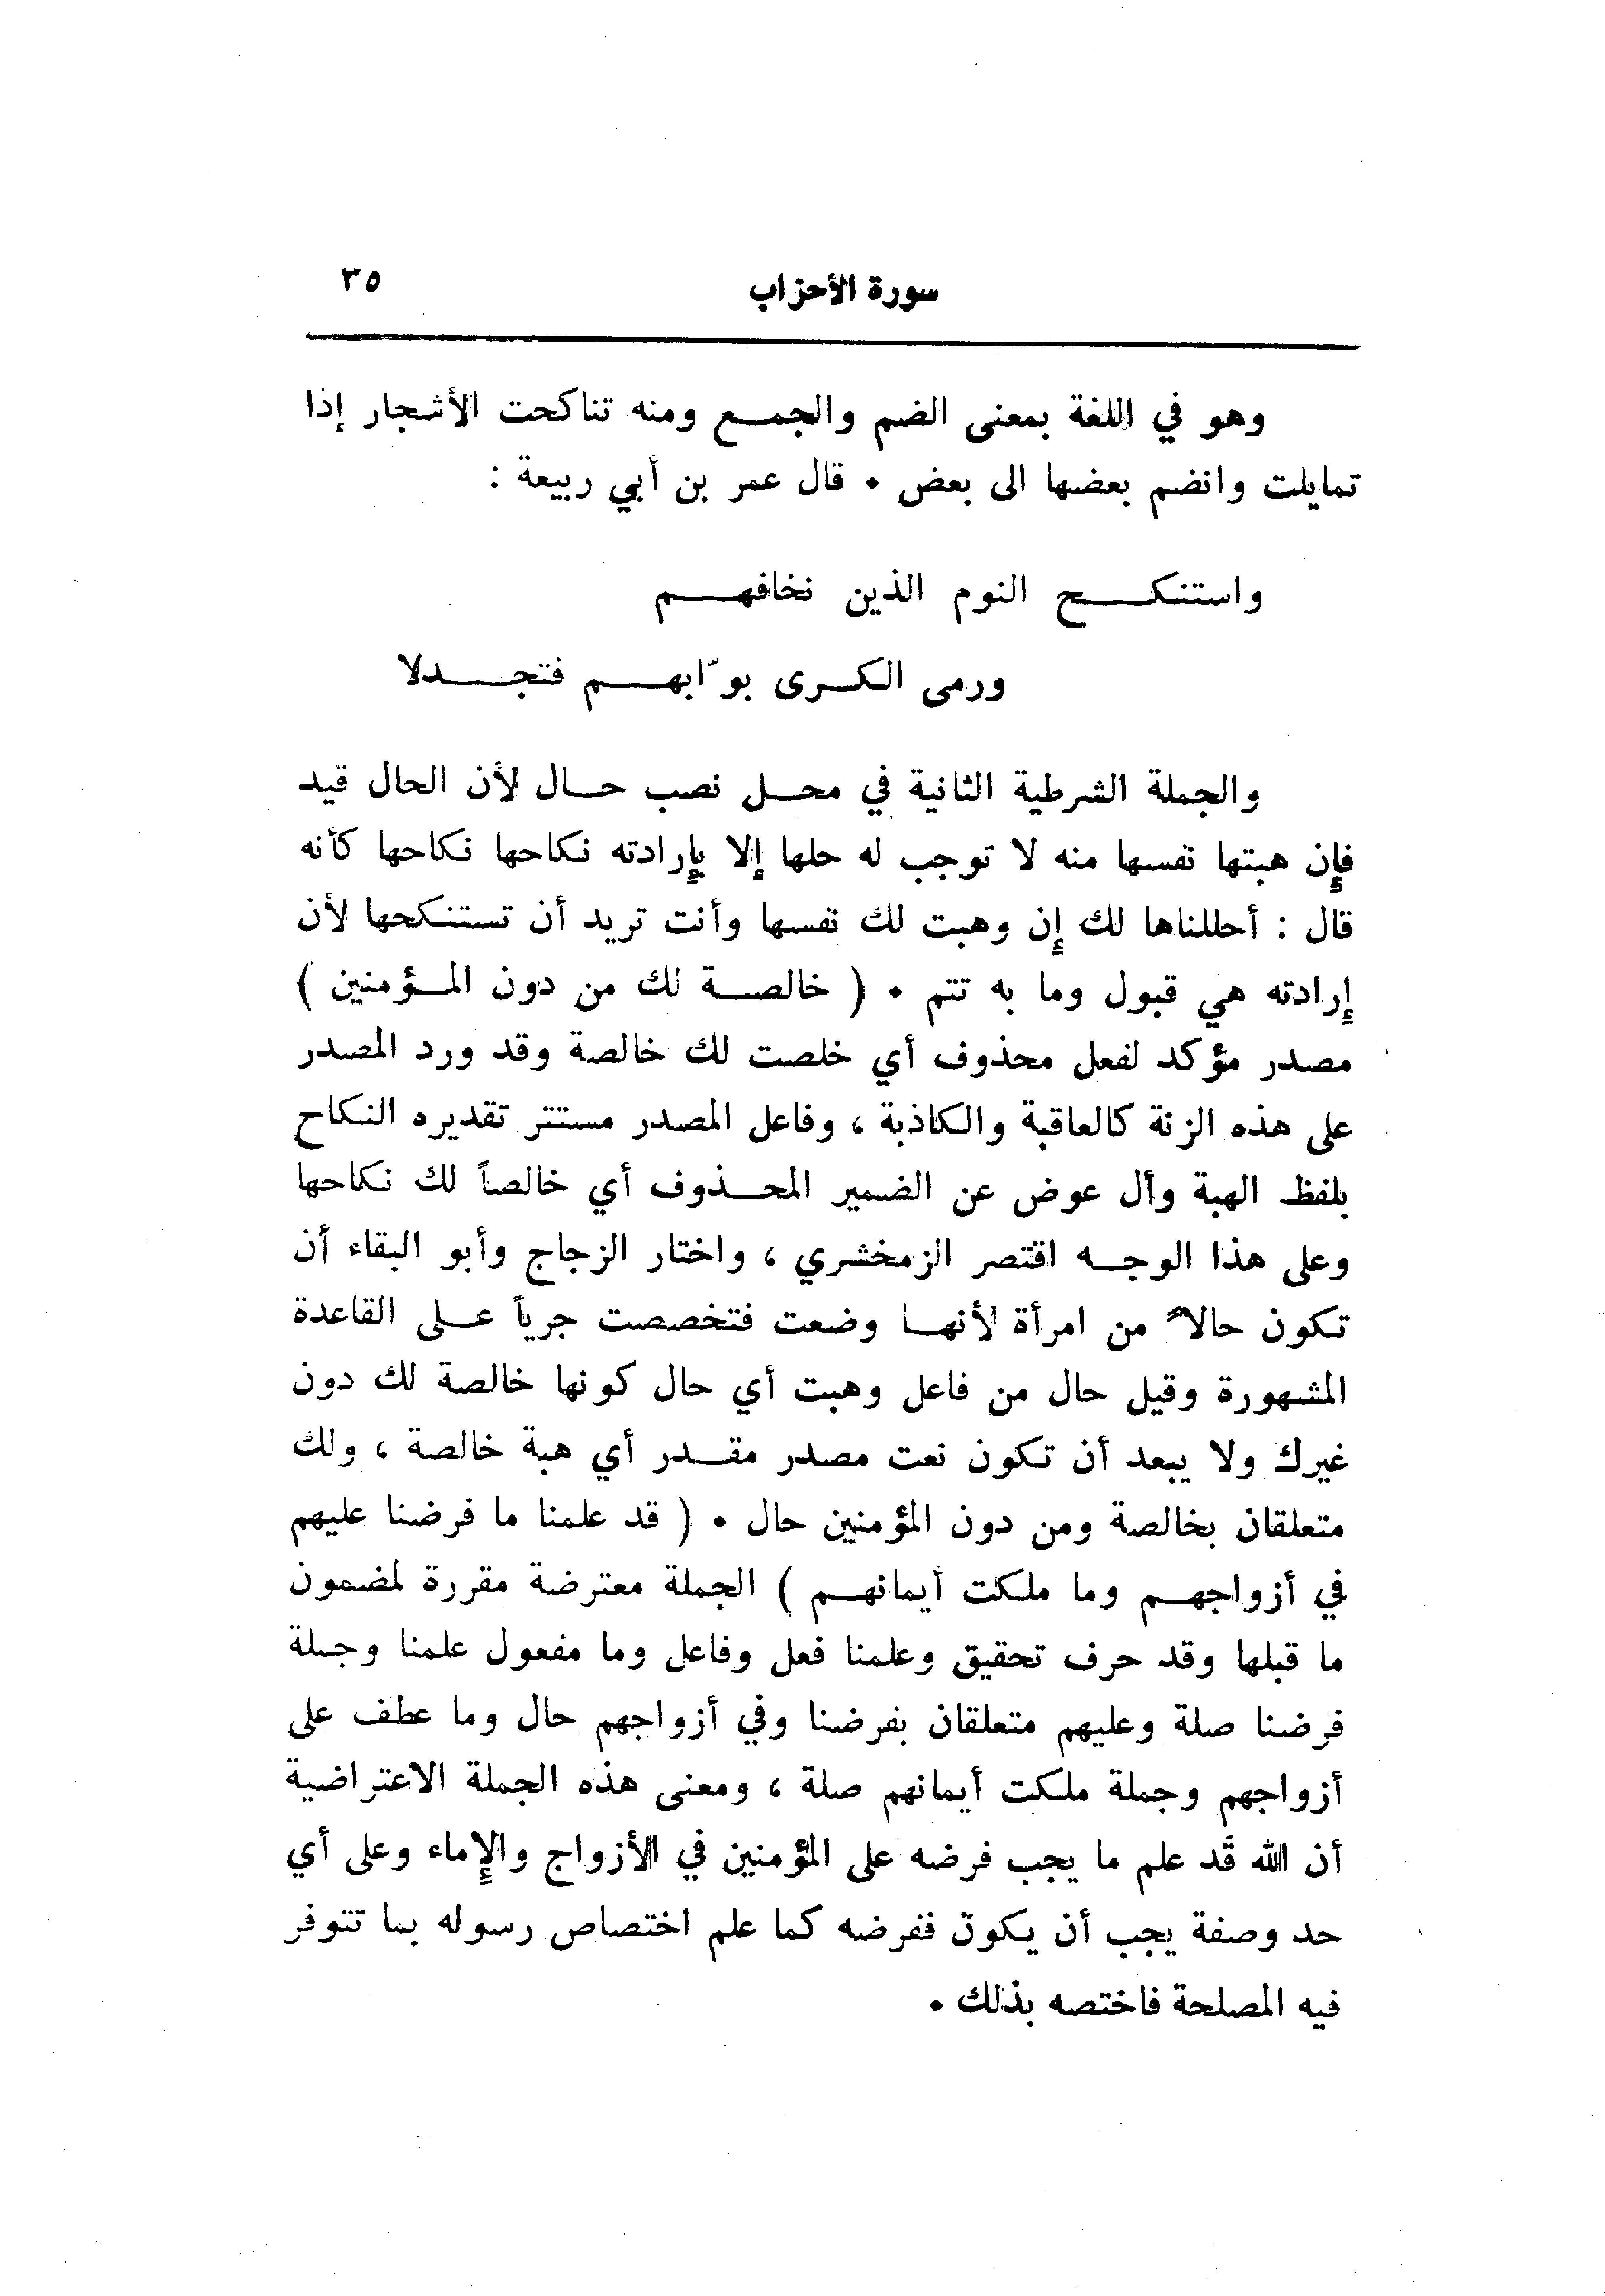 سورة الأحزاب ٣٥
وهو في اللغة بمعنى الضم والجمع ومنه تناكحت الأشجار إذا
تمايلت وانضم بعضها الى بعض • قال عمر بن أبي ربيعة :
واستنكح النوم الذين نخافهم
ورمى الكرى بوّابهم فتجدلا
والجملة الشرطية الثانية في محل نصب حال لأن الحال قيد
فإن هبتها نفسها منه لا توجب له حلها إلا بإرادته نكاحها نكاحها كأنه
قال : أحللناها لك إن وهبت لك نفسها وأنت تريد أن تستنكحها لأن
إرادته هي قبول وما به تتم • ( خالصة لك من دون المؤمنين )
مصدر مؤكد لفعل محذوف أي خلصت لك خالصة وقد ورد المصدر
على هذه الزنة كالعاقبة والكاذبة ، وفاعل المصدر مستتر تقديره النكاح
بلفظ الهبة وأل عوض عن الضمير المحذوف أي خالصاً لك نكاحها
وعلى هذا الوجه اقتصر الزمخشري ، واختار الزجاج وأبو البقاء أن
تكون حالاً من امرأة لأنها وضعت فتخصصت جرياً على القاعدة
المشهورة وقيل حال من فاعل وهبت أي حال كونها خالصة لك دون
غيرك ولا يبعد أن تكون نعت مصدر مقدر أي هبة خالصة ، ولك
متعلقان بخالصة ومن دون المؤمنين حال • ( قد علمنا ما فرضنا عليهم
في أزواجهم وما ملكت أيمانهم ) الجملة معترضة مقررة لمضمون
ما قبلها وقد حرف تحقيق وعلمنا فعل وفاعل وما مفعول علمنا وجملة
فرضنا صلة وعليهم متعلقان بفرضنا وفي أزواجهم حال وما عطف على
أزواجهم وجملة ملكت أيمانهم صلة ، ومعنى هذه الجملة الاعتراضية
أن الله قد علم ما يجب فرضه على المؤمنين في الأزواج والإماء وعلى أي
حد وصفة يجب أن يكون ففرضه كما علم اختصاص رسوله بما تتوفر
فيه المصلحة فاختصه بذلك •